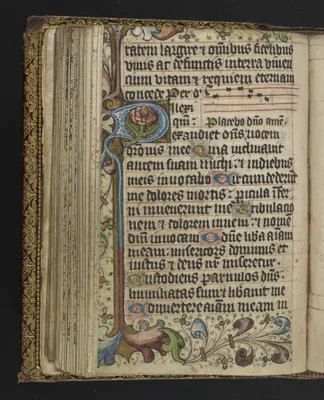 tatem largire et omnibus fidelibus
vivis ac defunctis in terra viven
cium vitam et requiem eternam
concede Per
Dilexi
qm̄ Placebo dño añ
exaudiet dñs vocem
orationis mee Quia inclinavit
aurem suam michi: et in diebus
meis invocabo Circundederunt
me dolores mortis: et pericula infer
ni invenerunt me Tribulacio
nem et dolorem inveni: et nomen
dñi invocavi O dñe libera aīam
meam: misericors dominus et
iustus et deus nr̄ miseretur
Custodiens parvulos dñs:
humiliatus sum et liberavit me
Convertere aīam meam in